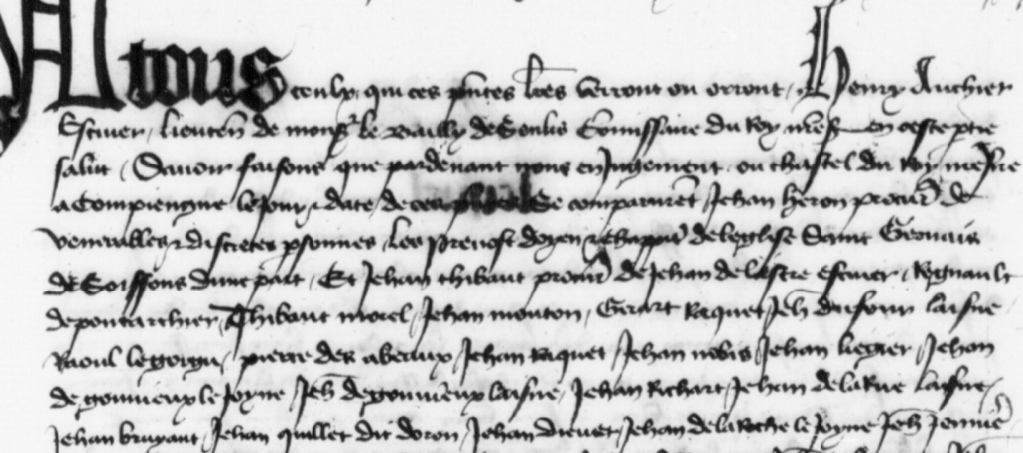 A tous ceulx qui ces pntes lres verront ou orront, Henry Auchier
Escuier, lieuten de mons le Bailly de Senlis Comissaire du Roy nres en ceste ptie
salut, Savoir faisons que pardevant nous en Jugement ou chastel du Roy nre sire
a Compiengne le jour & date de ces pntes Se comparurent Jehan heron procur de
venerables & discretes psonnes les prevost doyen & chappit de leglise Saint Gervais
de Soissons dune part, Et Jehan thibaut procur de Jehan de lastre escuier, Regnault
de pontarchier, Thibaut morel, Jehan mouton, Gerart Raquet Jeh dufour laisne
Raoul le gorgu, pierre des abeaux Jehan Raquet Jehan nobis Jehan liegier Jehan
de gouvieux le Joyne Jeh de gouvieux laisne, Jehan Richart, Jehan de la Rue laisne,
Jehan bruyant, Jehan quillet dit doron, Jehan Drouet, Jehan de la Roche le Joyne Jeh